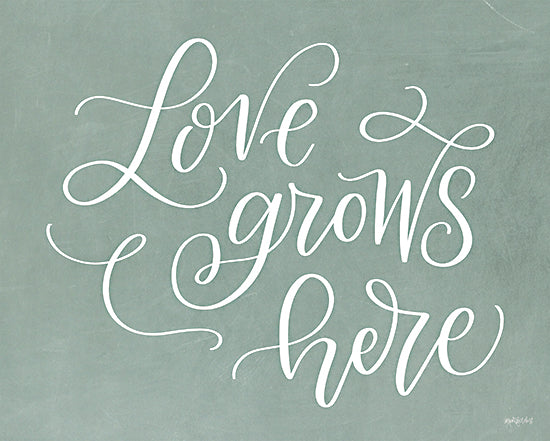 Love
grows
here